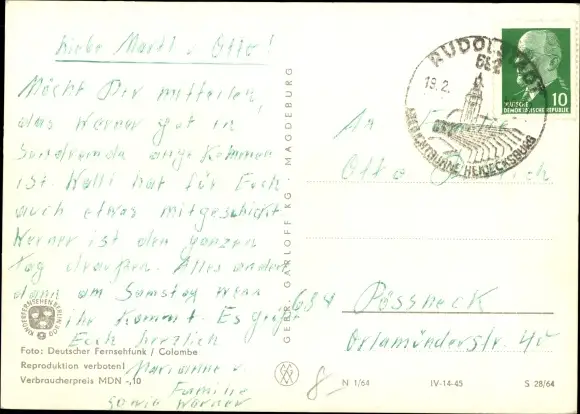 Liebe Martl u Otto!
Möcht Dir mitteilen,
das Werner gut in
angekommen
ist. Walli hat für Euch
auch etwas mitgeschickt
Werner ist den ganzen
Tag draußen. Alles andere
dann am Samstag wenn
ihr kommt. Es grüßt
Euch herzlich
Marianne u.
Familie
sowie Werner
KINDERFERNSEHEN BERLIN
Foto: Deutscher Fernsehfunk / Colombe
Reproduktion verboten!
Verbraucherpreis MDN -,10
GEBR. GARLOFF KG · MAGDEBURG
RUDOLSTADT
682
19.2.
HEIDECKSBURG
10
DEUTSCHE
DEMOKRATISCHE REPUBLIK
An Familie
Otto
684 Pössneck
Orlamünderstr. 45
8-
N 1/64
IV-14-45
S 28/64